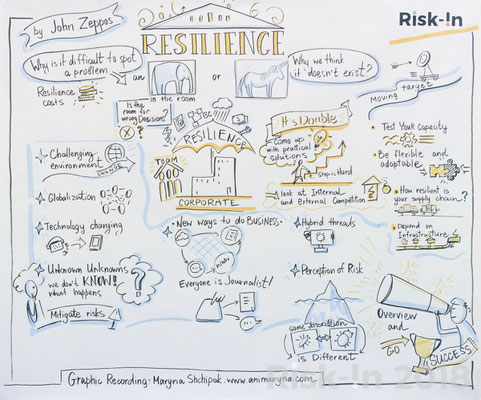 by John Zeppos
RESILIENCE
Risk-!n
Why is it difficult to spot
a problem
an
or
in the room
Why we think
it "doesn't exist?
Resilience
costs
Is the
room for
wrong Decisions
?
RESILIENCE
It's Double
Come up
with practical
solutions
1 step is Hard
look at Internal
and External Competition
moving target
• Test Your Capacity
• Be flexible and
adaptable
• How resilient is
your supply chain?
• Depend on
Infrastructure
Challenging
environment
CHANGE
Globalization
Technology changing
Unknown Unknowns
we don't KNOW!
what happens
?
Mitigate risks
TEAM
CORPORATE
• New ways to do BUSINESS •
Everyone is Journalist!
Hybrid threads
Perception of Risk
same situation
is Different
Overview
and
GO
SUCCESS
Graphic Recording: Maryna Shchipak. www.animaryna.com
Risk-In 2018